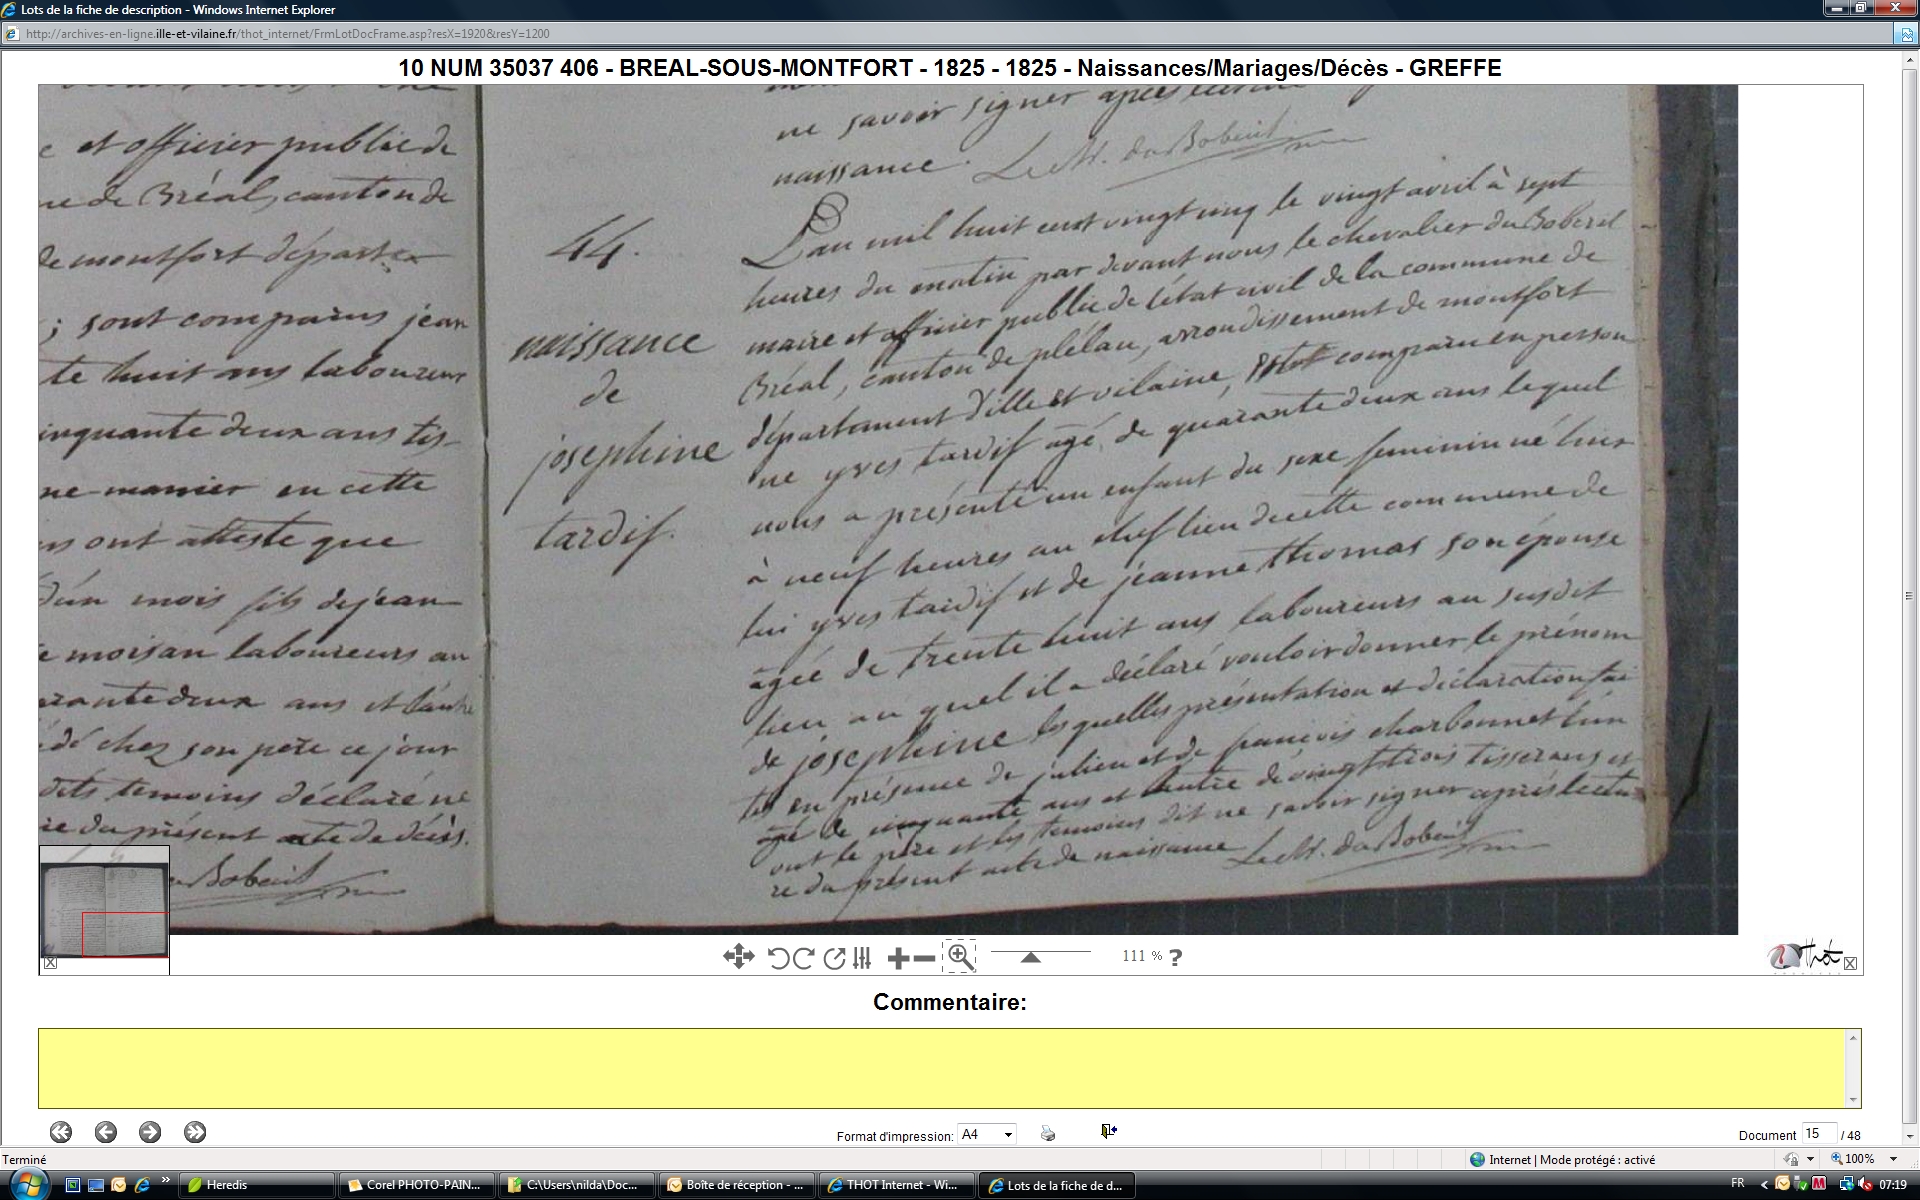 Lots de la fiche de description - Windows Internet Explorer
http://archives-en-ligne.ille-et-vilaine.fr/thot_internet/FrmLotDocFrame.asp?resX=1920&resY=1200
10 NUM 35037 406 - BREAL-SOUS-MONTFORT - 1825 - 1825 - Naissances/Mariages/Décès - GREFFE
et officier public de
ne de Bréal, canton de
de montfort départe
; sont comparus jean
te huit ans laboureur
inquante deux ans tis-
ne manier en cette
ns ont atteste que
d'un mois fils de jean
e moisan laboureurs au
rante deux ans et l'autre
dé chez son père ce jour
dits temoins déclaré ne
re du présent acte de décès.
du Boberil
44.
naissance
de
josephine
tardif.
ne savoir signer après lecture
naissance. Le Ch. du Boberil
L'an mil huit cent vingt cinq le vingt avril à sept
heures du matin par devant nous le chevalier du Boberil
maire et officier public de l'état civil de la commune de
Bréal, canton de plélan, arrondissement de montfort
département d'ille et vilaine, est comparu en person
ne yves tardif agé de quarante deux ans lequel
nous a présenté un enfant du sexe feminin né hier
à neuf heures au chef lieu de cette commune de
lui yves tardif et de jeanne thomas son épouse
agée de trente huit ans laboureurs au susdit
lieu au quel il a déclaré vouloir donner le prénom
de josephine les quelles présentation et déclaration fai
tes en présence de julien et de françois charbonnet l'un
agé de cinquante ans et l'autre de vingt trois tisserans et
ont le père et les temoins dit ne savoir signer après lectu
re du présent acte de naissance Le Ch. du Boberil
111 % ?
Thot
Commentaire:
Format d'impression: A4
Document 15 / 48
Terminé
Internet | Mode protégé : activé
100%
Heredis
Corel PHOTO-PAIN...
C:\Users\nilda\Doc...
Boîte de réception - ...
THOT Internet - Wi...
Lots de la fiche de d...
FR
07:19